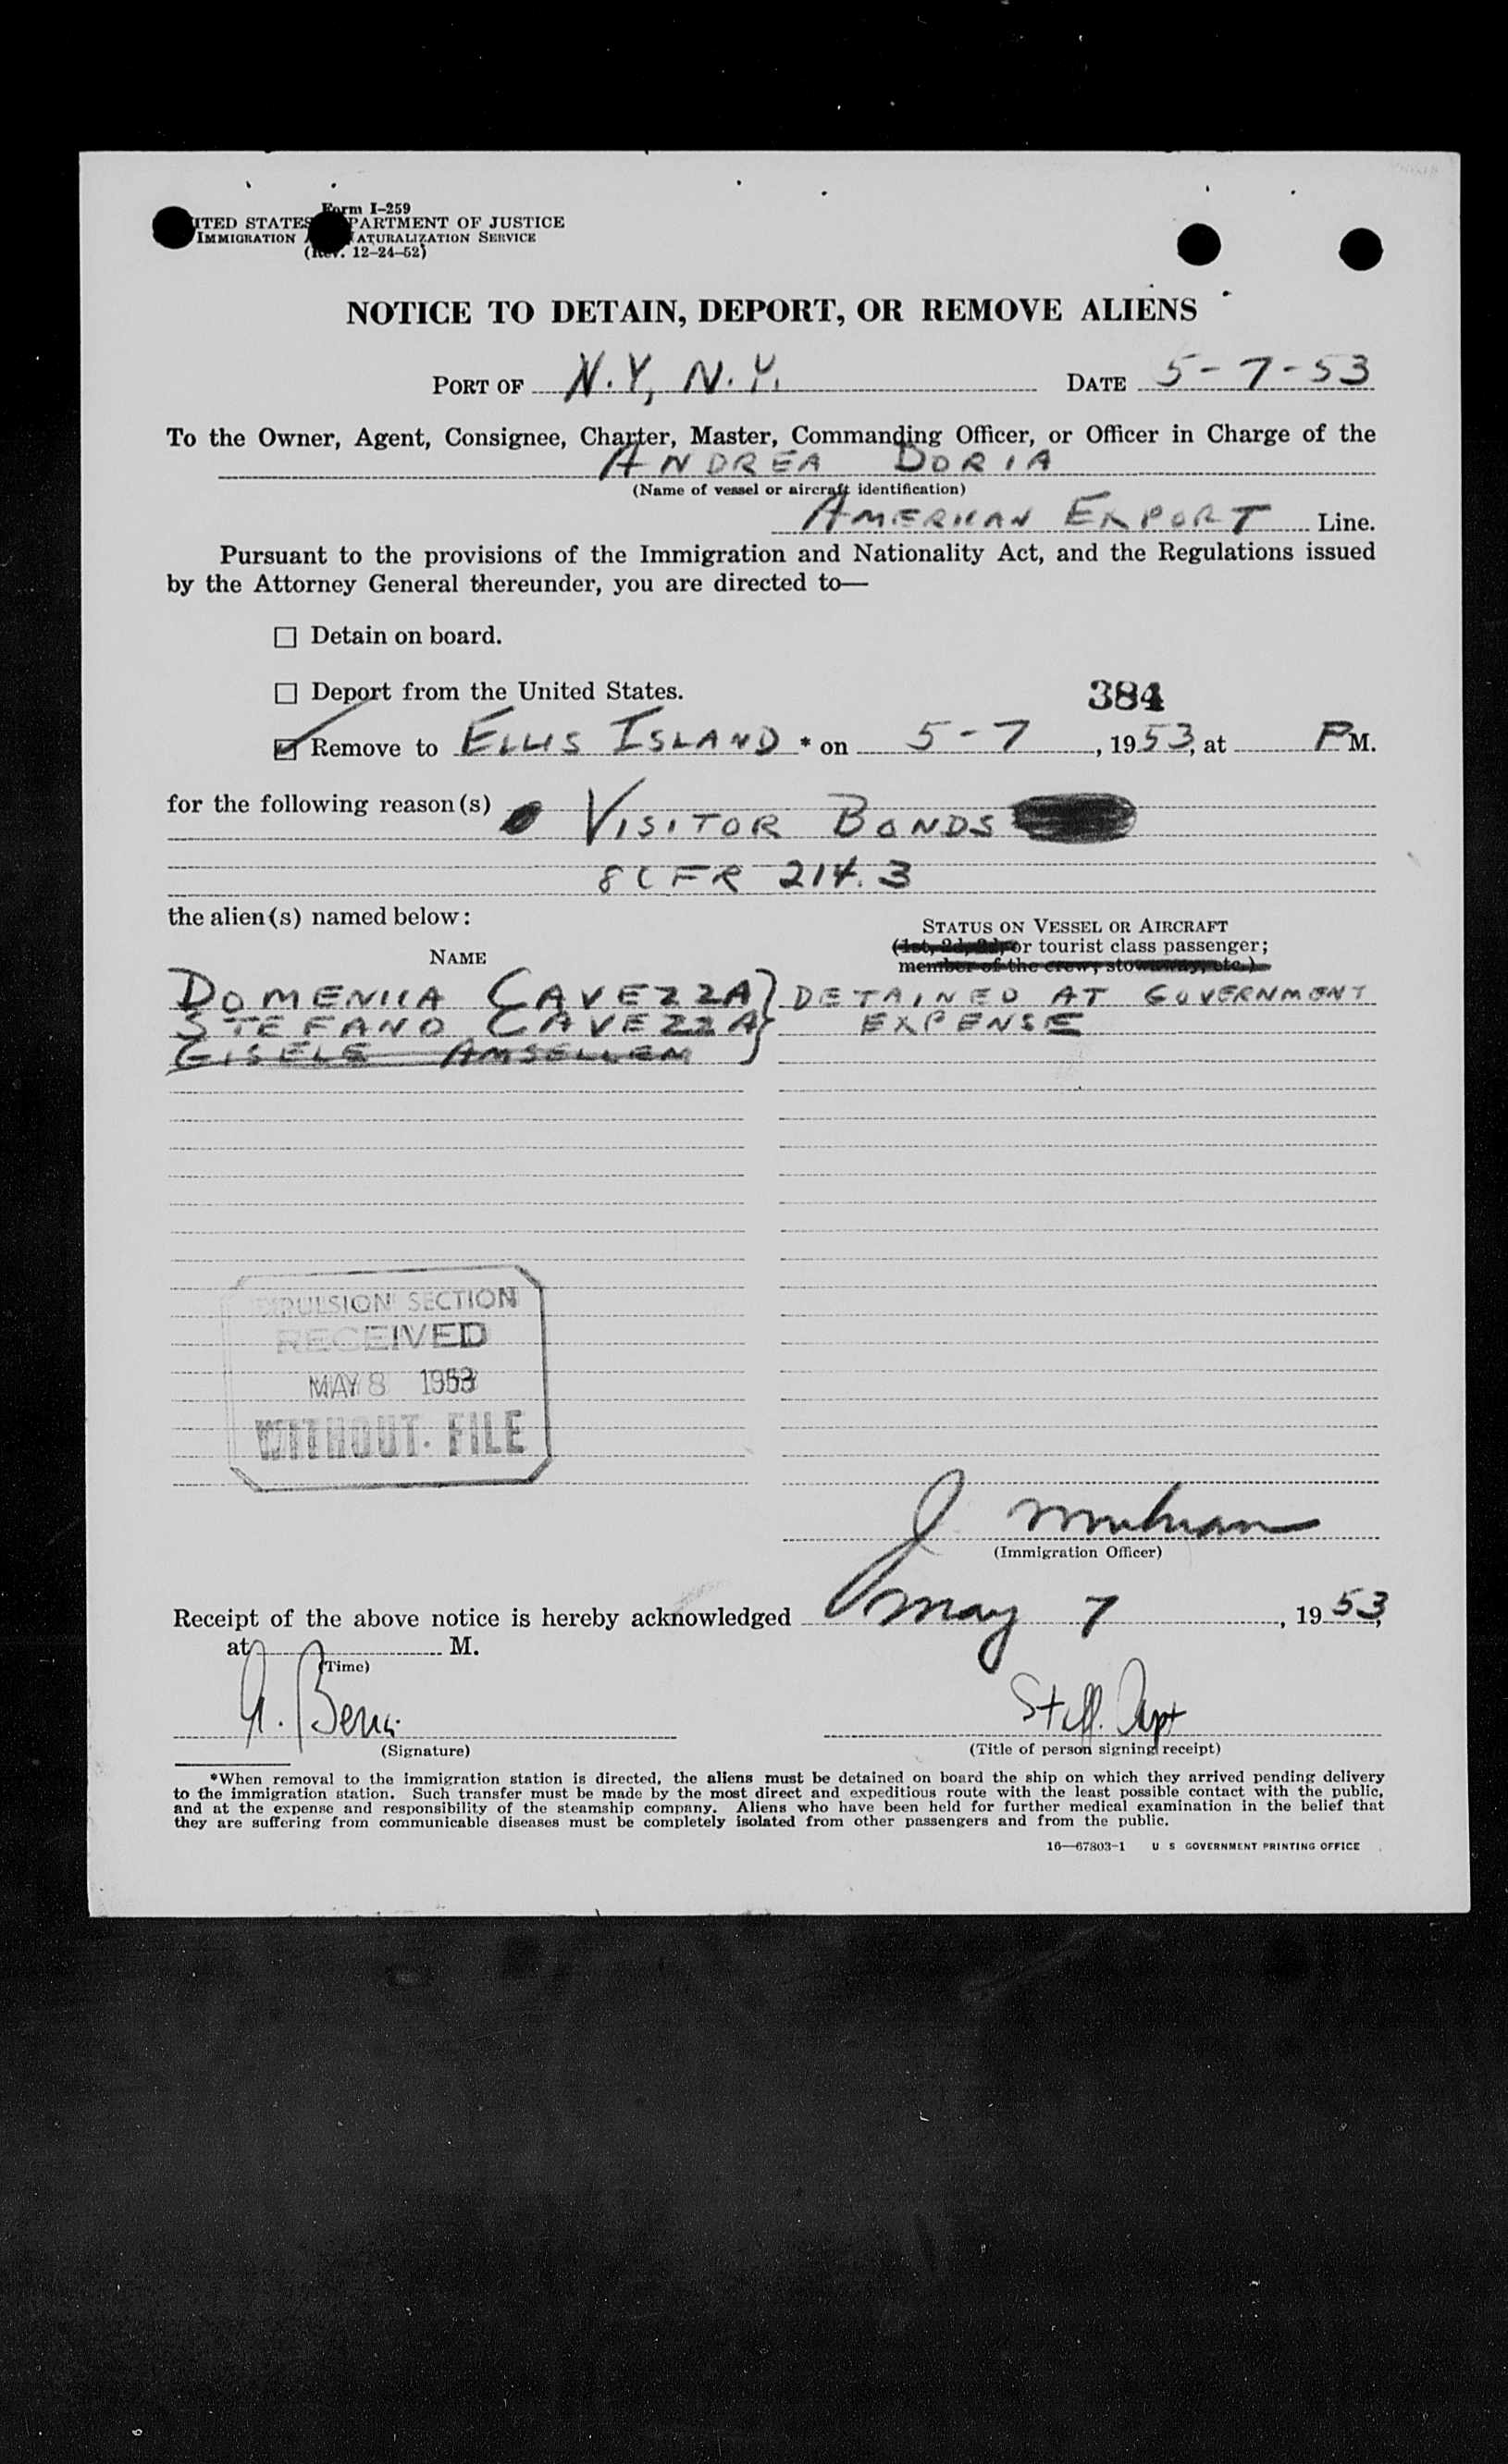 Form I-259
ITED STATES PARTMENT OF JUSTICE
IMMIGRATION ATURALIZATION SERVICE
(Rev. 12-24-52)
NOTICE TO DETAIN, DEPORT, OR REMOVE ALIENS
PORT OF N.Y, N.Y. DATE 5-7-53
To the Owner, Agent, Consignee, Charter, Master, Commanding Officer, or Officer in Charge of the
ANDREA DORIA
(Name of vessel or aircraft identification)
AMERICAN EXPORT Line.
Pursuant to the provisions of the Immigration and Nationality Act, and the Regulations issued
by the Attorney General thereunder, you are directed to—
☐ Detain on board.
☐ Deport from the United States.
384
☑ Remove to ELLIS ISLAND * on 5-7, 1953, at P M.
for the following reason(s)
VISITOR BONDS
8 CFR 214.3
the alien(s) named below:
STATUS ON VESSEL OR AIRCRAFT
(1st, 2d, 3d, or tourist class passenger;
NAME
member of the crew, stowaway, etc.)
DOMENICA CAVEZZA } DETAINED AT GOVERNMENT
STEFANO CAVEZZA } EXPENSE
GISELE AMSELLEM }
EXPULSION SECTION
RECEIVED
MAY 8 1953
WITHOUT FILE
J
(Immigration Officer)
Receipt of the above notice is hereby acknowledged May 7, 1953,
at M.
(Time)
Staff. Capt
(Signature)
(Title of person signing receipt)
*When removal to the immigration station is directed, the aliens must be detained on board the ship on which they arrived pending delivery
to the immigration station. Such transfer must be made by the most direct and expeditious route with the least possible contact with the public,
and at the expense and responsibility of the steamship company. Aliens who have been held for further medical examination in the belief that
they are suffering from communicable diseases must be completely isolated from other passengers and from the public.
16—67803-1 U S GOVERNMENT PRINTING OFFICE